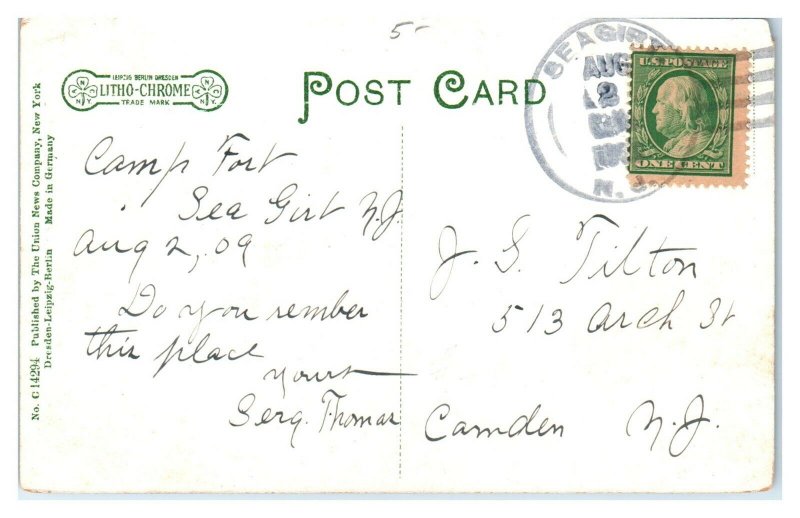 5-
LEIPZIG BERLIN DRESDEN
LITHO-CHROME
TRADE MARK
N. Y. N. Y.
POST CARD
SEAGIRT
AUG
2
N.J.
U.S. POSTAGE
ONE CENT
No. C 14294 Published by The Union News Company, New York
Dresden-Leipzig-Berlin Made in Germany
Camp Fort
Sea Girt N.J.
Aug 2, 09
Do you rember
this place
yours
Serg. Thomas
J. S. Tilton
513 Arch St
Camden N.J.